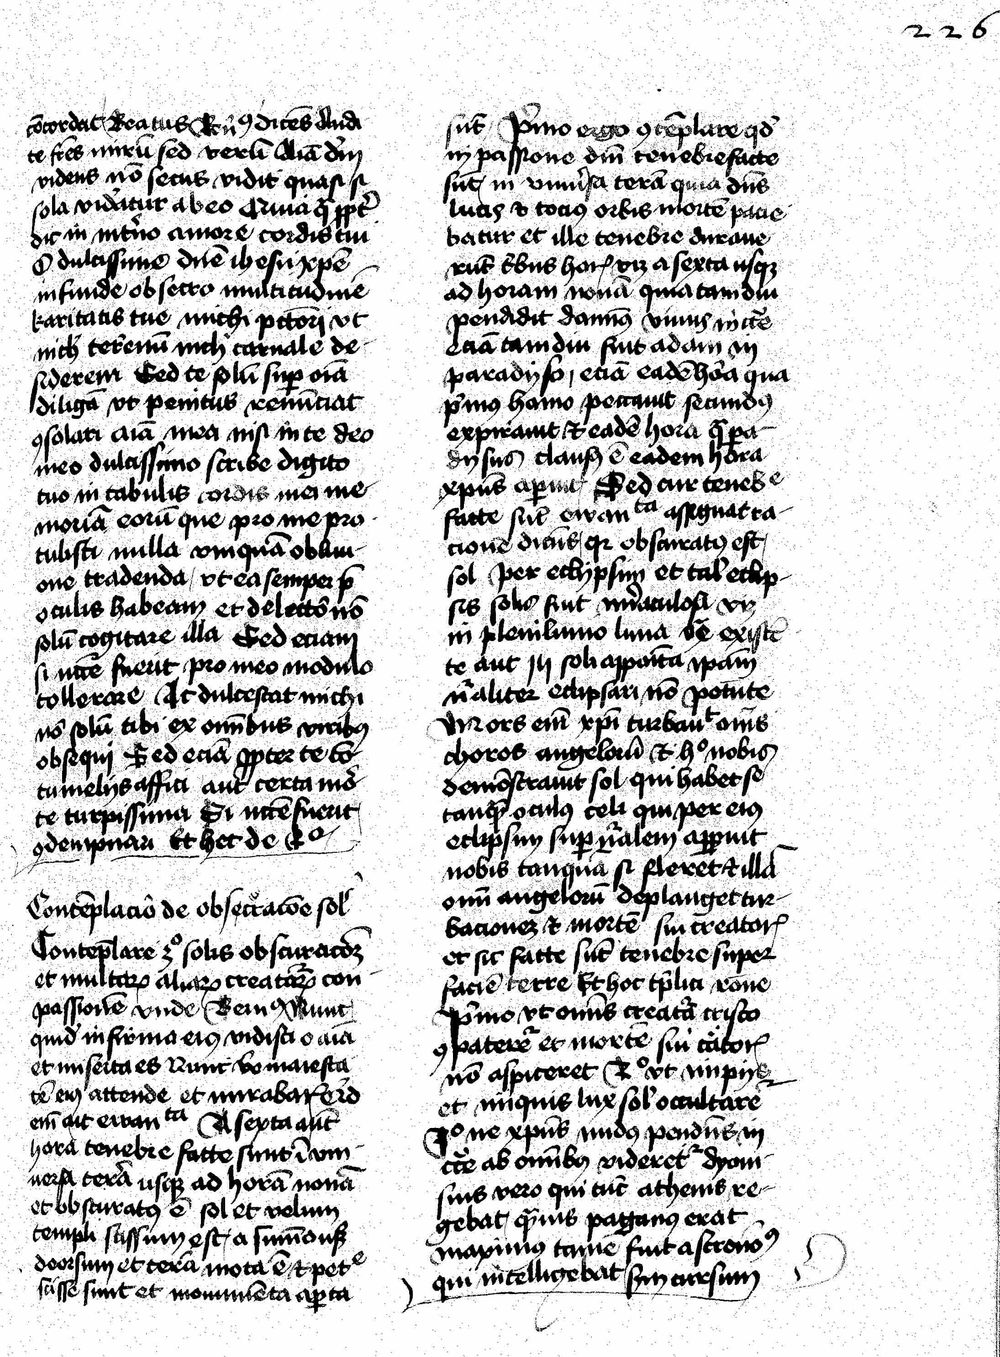 226
co̅cordat Beatus Ber̅n9 dice̅s Audi
te fr̅es miru̅ sed veru̅ Aia̅ dn̅i
videns no̅ secus vidit quasi si
sola videatur ab eo Anima q̅ p̅pt
dic in int'no amore cordis tui
O dulcissime dn̅e ih̅esu xp̅e
infunde obsecro multitudine̅
karitatis tue michi pctori vt
nich' terrenu̅ nich' carnale de-
siderem Sed te solu̅ sup̅ oi̅a
diliga̅ vt penitus renu̅ciat
9solari ai̅a mea nisi in te deo
meo dulcissimo scribe digito
tuo in tabulis cordis mei me-
moria̅ eoru̅ que pro me pro-
tulisti nulla vmqua̅ obliui-
one tradenda / vt ea semper p̅
oculis habeam et delectet no̅
solu̅ cogitare illa Sed eciam
si nc̅ce fuerit pro meo modulo
tollerare Et dulcescat michi
no̅ solu̅ tibi ex omnibus viribus
obsequi Sed ecia̅ p̅pter te co̅-
tumelijs affici aut certa mor-
te turpissima Si ncce̅ fuerit
9dempnari Et hec de Ro
Conte̅placio̅ de obscurac̅oe sol'
Conte̅plare 3o solis obscurac̅oem
et multar̅ aliar̅ creatur̅ con-
passione̅ vnde Bern9 Nunc
quid infirma ei9 vidisti o ai̅a
et miserta es Nunc vo̅ maiesta-
te̅ ei9 attende et miraber̅
em̅ ait ewan ta A sexta aut̅
hora tenebre facte sunt i̅ vni-
uersa terra̅ usq3 ad hora̅ nona̅
et obscurat9 e̅ sol et velum
templi scissum est a summo usq3
deorsum et terra̅ mota e̅ et pet'e
scisse sunt et monume̅ta ap̅ta
sut̅ P'mo ergo 9te̅plare qd'
in passione dn̅i tenebre facte
sut̅ in vniu'sa terra̅ quia dn̅s
lucis et toci9 orbis morte̅ pacie-
batur et ille tenebre duraue-
rut̅ t'bus hor̅ vi3 a sexta usq3
ad horam nona̅ quia tam diu
pendidit domin9 viuus in c'ce
ecia̅ tam diu fuit adam in
paradyso / ecia̅ eade̅ hora qua
p'mus homo peccauit secund9
expirauit et eade̅ hora q̅ para-
dysus claus9 e̅ eadem hora
xp̅us ap̅uit Sed cur tenebe
facte sut̅ ewan ta assignat ra-
cione̅ dicens / q2 obscurat9 est
sol per eclypsim et tal' eclip-
sis solis fuit m'aculosa vi3
in plenilunio luna tu̅c existe̅-
te aut soli apposita ipsam
n̅aliter eclipsari no̅ pote̅te
Mors em̅ xp̅i turbauit omn̅s
choros angeloru̅ et ho nobis
demo̅strauit sol qui habet se
tanq̅ ocul9 celi qui per ei9
eclipsim sup̅ n̅alem apparuit
nobis tanqua̅ si fleret et illa̅
om̅ angeloru̅ deplanget tur-
bacionem et morte̅ sui creator̅
et sic facte sut̅ tenebre super
facie̅ terre Et hoc t'plici r̅one
P'mo vt omn̅is creat'a cristo
9patere̅ et morte̅ sui c'ator̅
no̅ aspiceret Ro vt impijs
et iniquis lux sol' occultare̅
3o ne xp̅us nudus pende̅s in
c'ce ab omn̅ibus videret' dyoni-
sius vero qui tu̅c athenis re-
gebat q̅uis paganus erat
maximus tame̅ fuit astrono9
qui intelligebat syn cursum